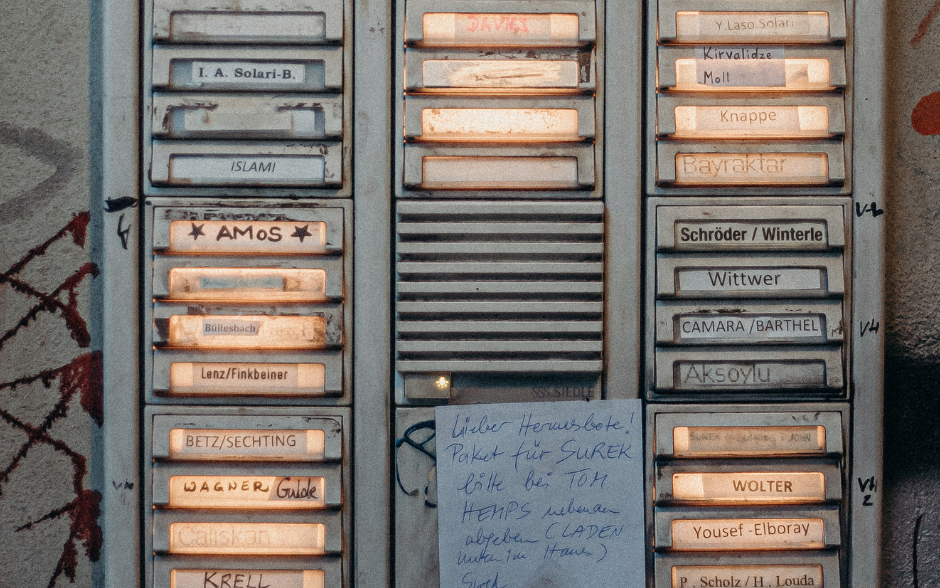 I. A. Solari-B.
ISLAMI
★ AMOS ★
Büllesbach
Lenz/Finkbeiner
BETZ/SECHTING
WAGNER Gulde
Caliskan
KRELL
DAVIES
SSS SIEDLE
Lieber Hermesbote!
Paket für SUREK
bitte bei TOM
HEMPS nebenan
abgeben (LADEN
unten im Haus)
Surek
Y.Laso.Solari
Kirvalidze
Moll
Knappe
Bayraktar
Schröder / Winterle
Wittwer
CAMARA /BARTHEL
Aksoylu
SUREK
JOHN
WOLTER
Yousef -Elboray
P. Scholz / H. Louda
V4